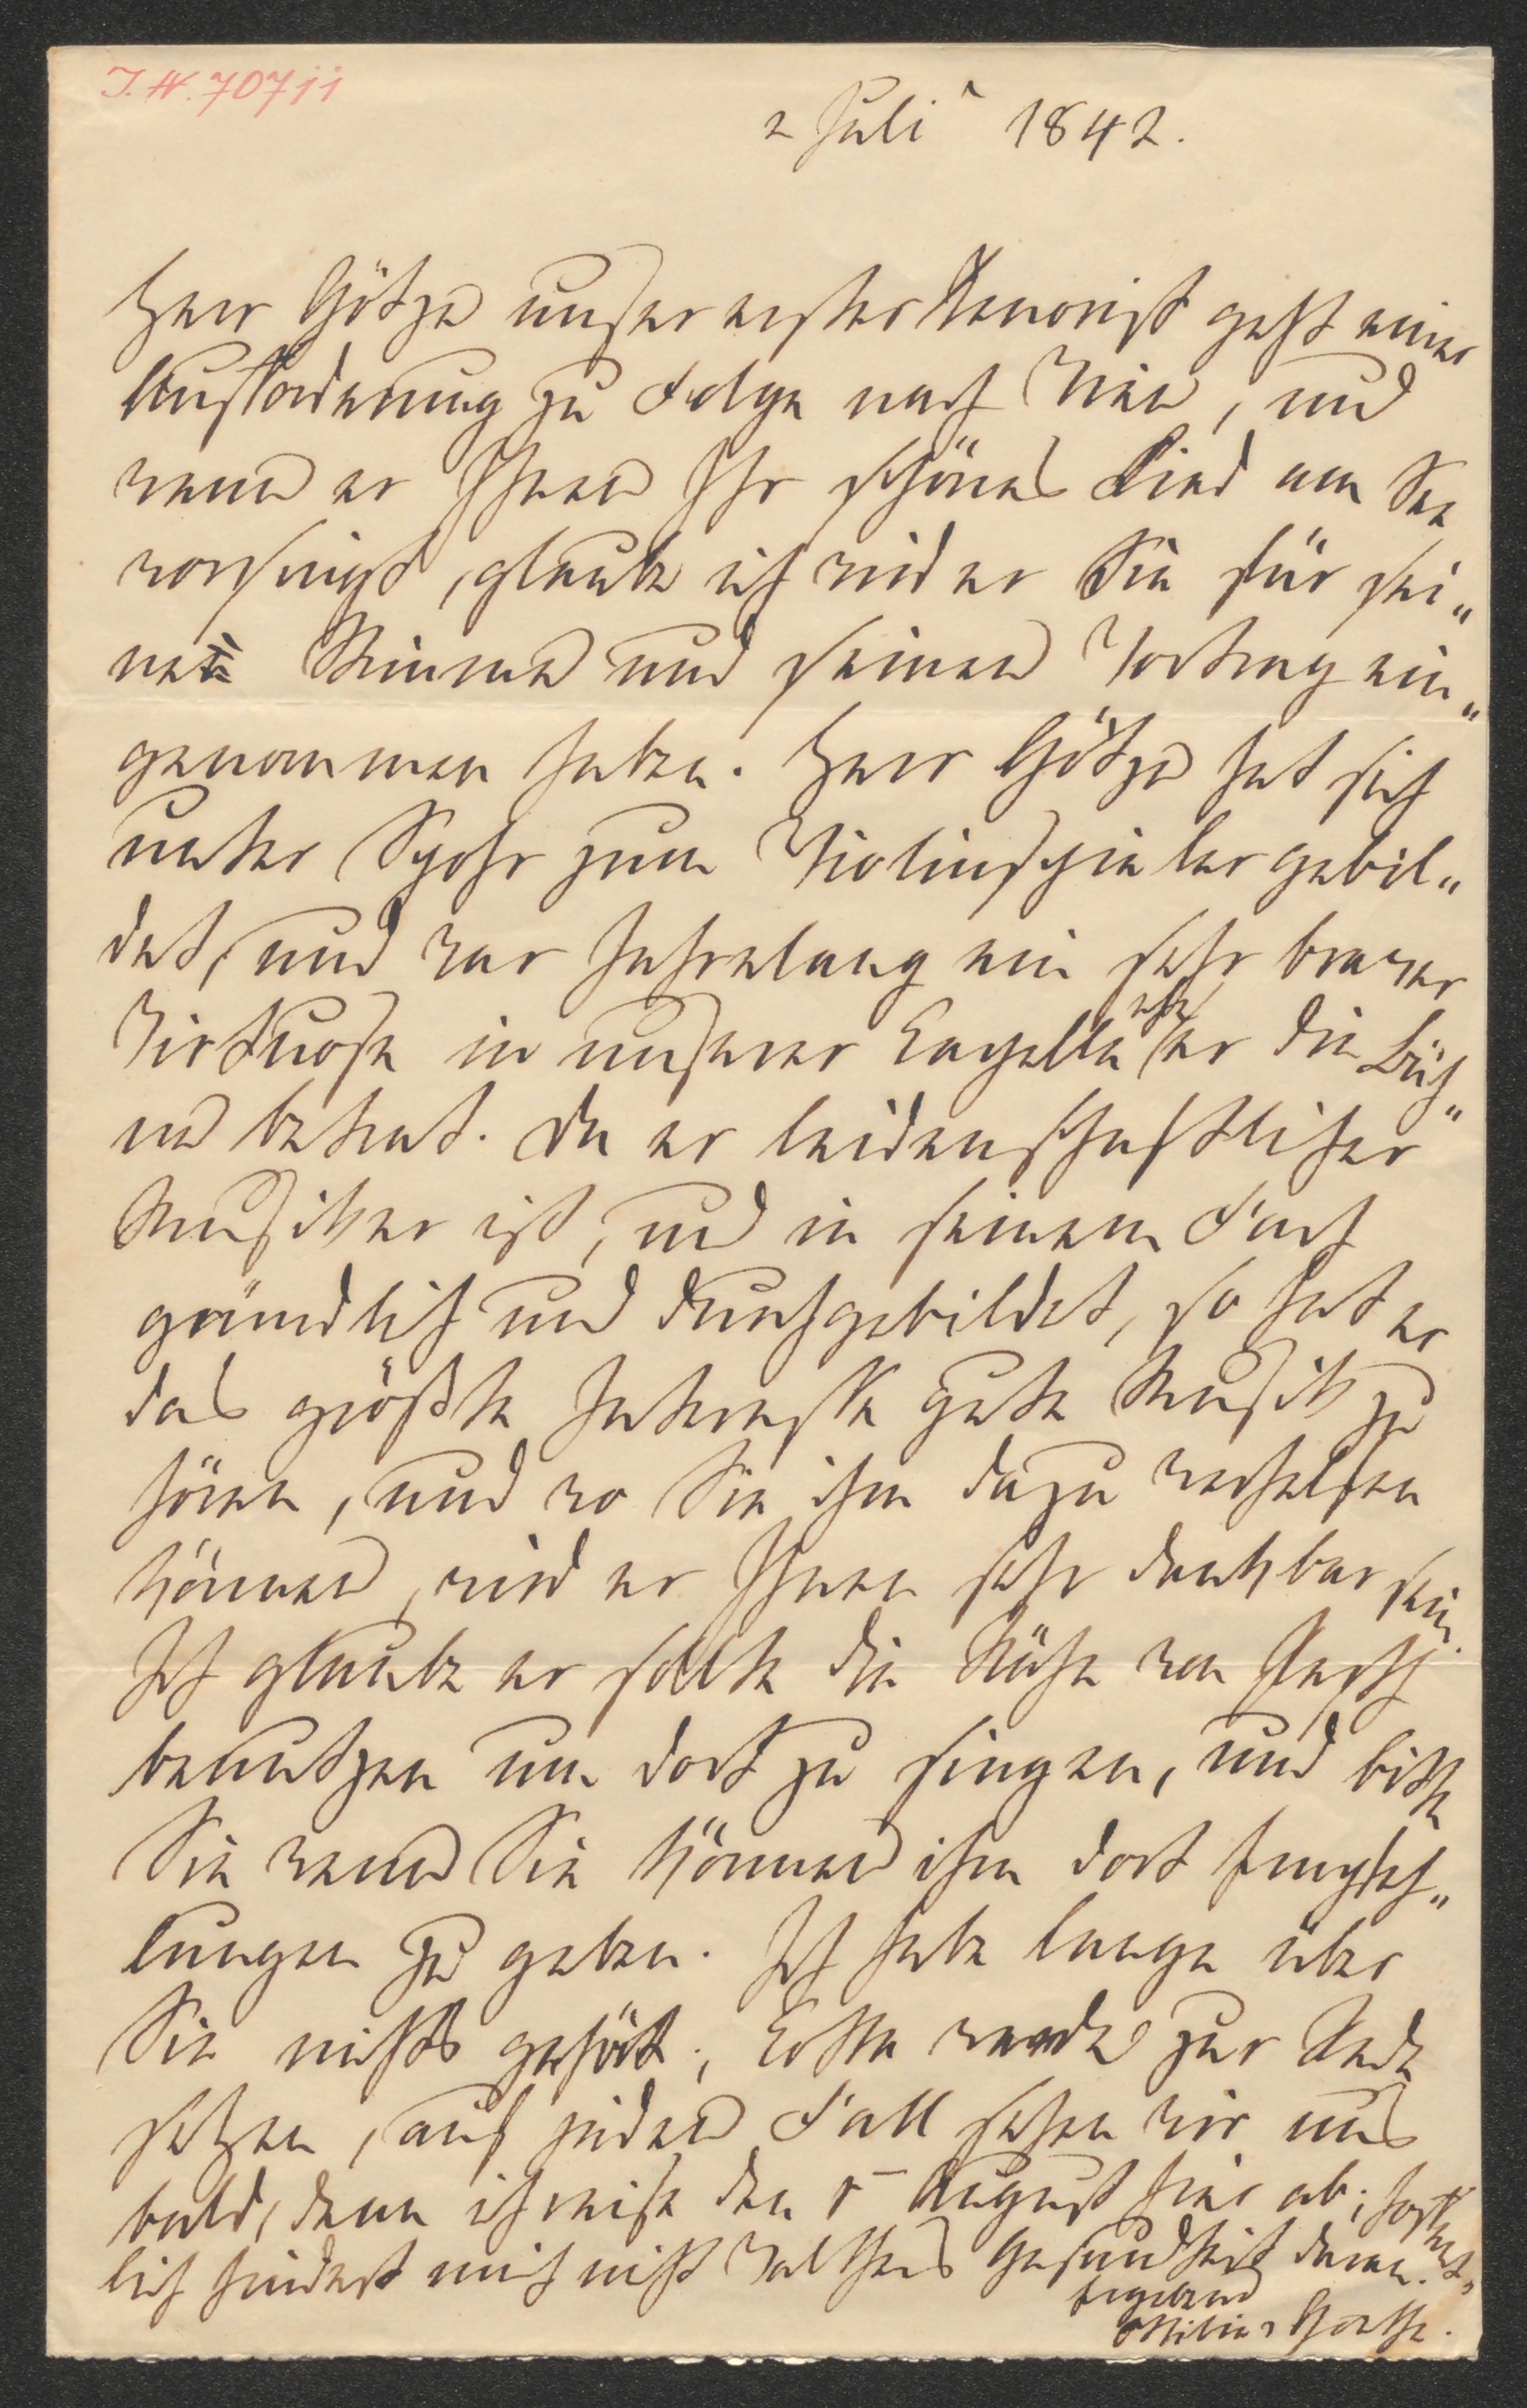 I.N. 70711
2 Juli 1842.
Herr Götze unser erster Tenorist geht einer
Aufforderung zu Folge nach Wien, und
wenn er Ihnen Ihr schönes Lied am See
vorsingt, glaube ich wird er Sie für sei„
ne Stimme und seinen Vortrag ein„
genommen haben. Herr Götze hat sich
unter Spohr zum Violinspieler gebil„
det, und war Jahrelang ein sehr braver
Virtuose in unserer Capelle ehe er die Büh„
ne betrat. Da er leidenschaftlicher
Musiker ist, und in seinem Fach
gründlich und durchgebildet, so hat er
das größte Interesse gute Musik zu
hören, und wo Sie ihm dazu verhelfen
können, wird er Ihnen sehr dankbar sein.
Ich glaube er sollte die Nähe von Pesth
benutzen um dort zu singen, und bitte
Sie wenn Sie können ihm dort Empfeh„
lungen zu geben. Ich habe lange über
Sie nichts gehört; werde zur Rede
setzen, auf jeden Fall sehen wir uns
bald, denn ich reise den 5 August hier ab; hoffent„
lich hindert mich nicht Walthers Gesundheit daran.
Ergebene
Ottilie v Goethe.